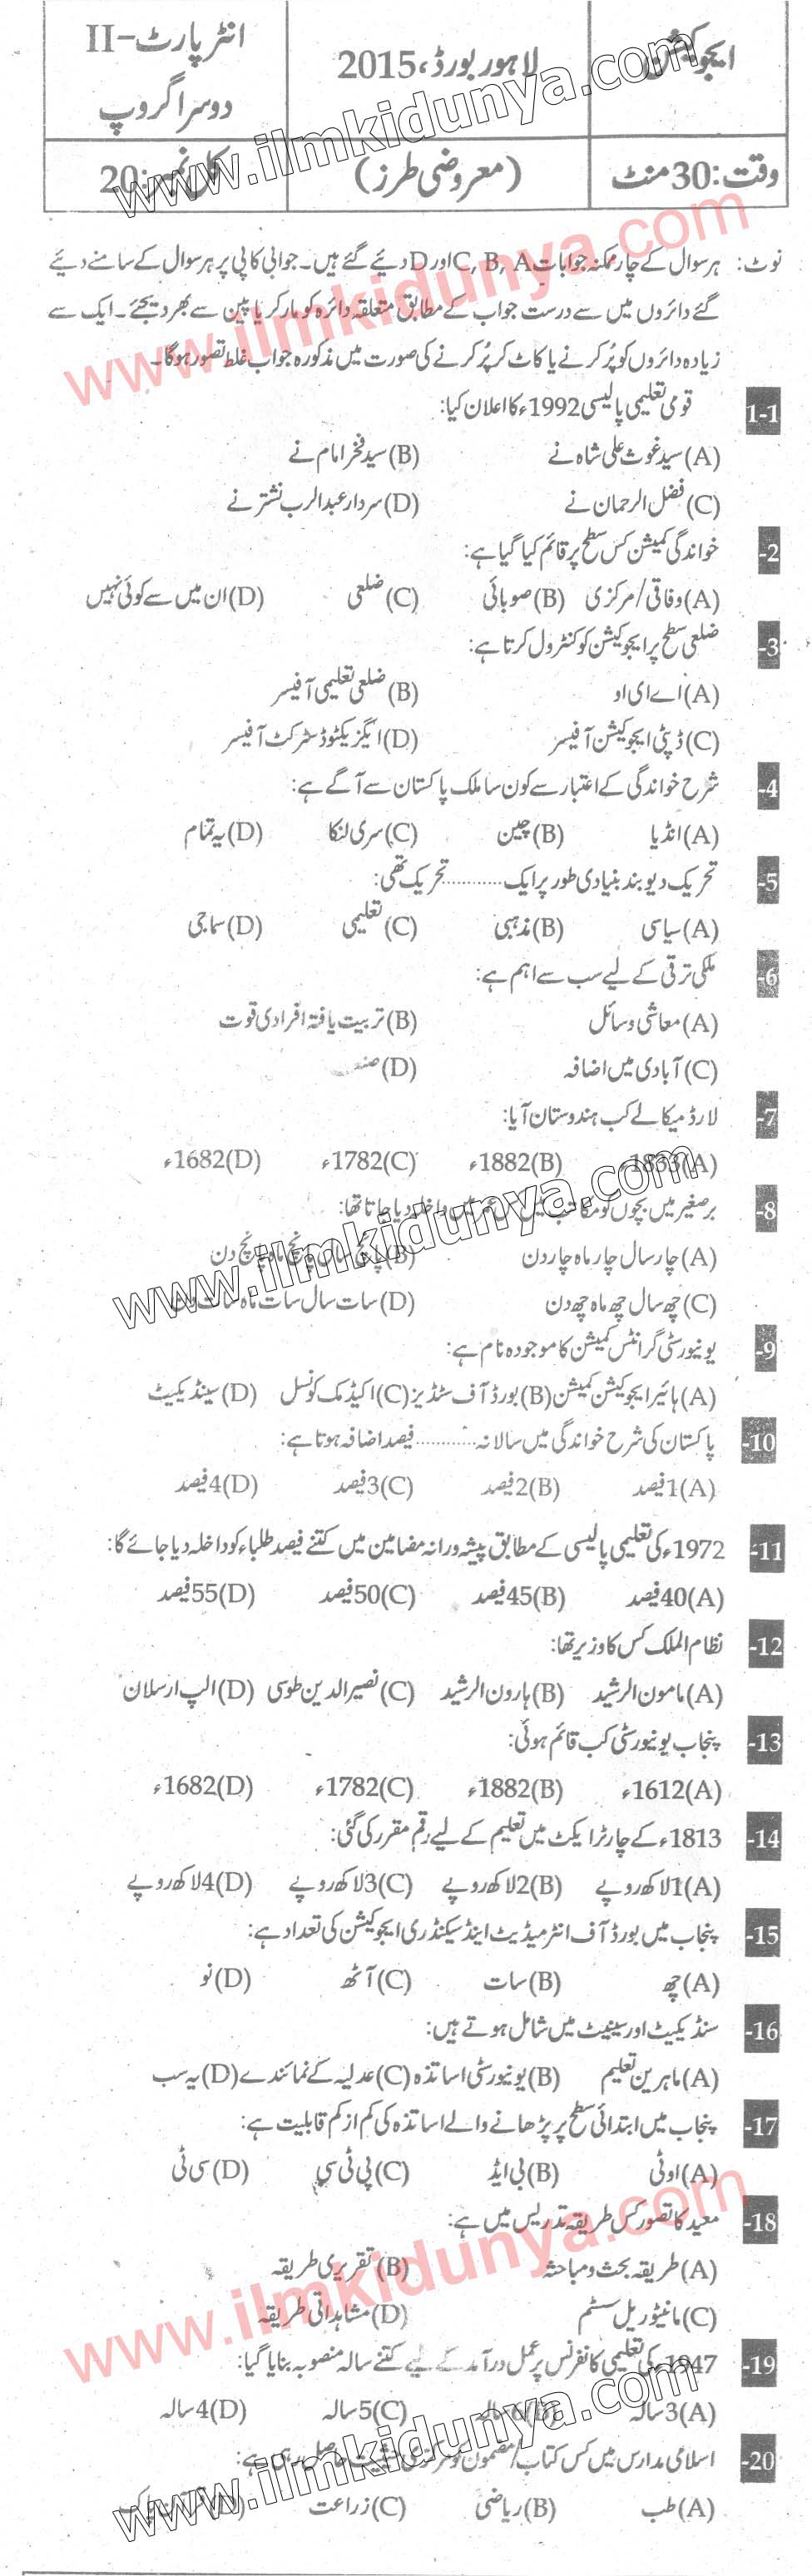 ایجوکیشن
لاہور بورڈ، 2015
انٹر پارٹ-II
دوسرا گروپ
وقت: 30 منٹ
(معروضی طرز)
کل نمبر: 20
نوٹ: ہر سوال کے چار ممکنہ جوابات C, B, A اور D دیئے گئے ہیں۔ جوابی کاپی پر ہر سوال کے سامنے دیئے
گئے دائروں میں سے درست جواب کے مطابق متعلقہ دائرہ کو مارکر یا پین سے بھر دیجئے۔ ایک سے
زیادہ دائروں کو پُر کرنے یا کاٹ کر پُر کرنے کی صورت میں مذکورہ جواب غلط تصور ہو گا۔
1-1 قومی تعلیمی پالیسی 1992ء کا اعلان کیا:
(A) سید غوث علی شاہ نے (B) سید فخر امام نے
(C) فضل الرحمان نے (D) سردار عبدالرب نشتر نے
2- خواندگی کمیشن کس سطح پر قائم کیا گیا ہے:
(A) وفاقی/مرکزی (B) صوبائی (C) ضلعی (D) ان میں سے کوئی نہیں
3- ضلعی سطح پر ایجوکیشن کو کنٹرول کرتا ہے:
(A) اے ای او (B) ضلعی تعلیمی آفیسر
(C) ڈپٹی ایجوکیشن آفیسر (D) ایگزیکٹو ڈسٹرکٹ آفیسر
4- شرح خواندگی کے اعتبار سے کون سا ملک پاکستان سے آگے ہے:
(A) انڈیا (B) چین (C) سری لنکا (D) یہ تمام
5- تحریک دیوبند بنیادی طور پر ایک ........... تحریک تھی:
(A) سیاسی (B) مذہبی (C) تعلیمی (D) سماجی
6- ملکی ترقی کے لیے سب سے اہم ہے:
(A) معاشی وسائل (B) تربیت یافتہ افرادی قوت
(C) آبادی میں اضافہ (D)
7- لارڈ میکالے کب ہندوستان آیا:
(A) 1833ء (B) 1882ء (C) 1782ء (D) 1682ء
8- برصغیر میں بچوں کو مکاتب میں کس عمر میں داخلہ دیا جاتا تھا:
(A) چار سال چار ماہ چار دن (B) پانچ سال پانچ ماہ پانچ دن
(C) چھ سال چھ ماہ چھ دن (D) سات سال سات ماہ سات دن
9- یونیورسٹی گرانٹس کمیشن کا موجودہ نام ہے:
(A) ہائیر ایجوکیشن کمیشن (B) بورڈ آف سٹڈیز (C) اکیڈمک کونسل (D) سینڈیکیٹ
10- پاکستان کی شرح خواندگی میں سالانہ ........... فیصد اضافہ ہوتا ہے:
(A) 1 فیصد (B) 2 فیصد (C) 3 فیصد (D) 4 فیصد
11- 1972ء کی تعلیمی پالیسی کے مطابق پیشہ ورانہ مضامین میں کتنے فیصد طلباء کو داخلہ دیا جائے گا:
(A) 40 فیصد (B) 45 فیصد (C) 50 فیصد (D) 55 فیصد
12- نظام الملک کس کا وزیر تھا:
(A) مامون الرشید (B) ہارون الرشید (C) نصیر الدین طوسی (D) الپ ارسلان
13- پنجاب یونیورسٹی کب قائم ہوئی:
(A) 1612ء (B) 1882ء (C) 1782ء (D) 1682ء
14- 1813ء کے چارٹر ایکٹ میں تعلیم کے لیے رقم مقرر کی گئی:
(A) 1 لاکھ روپے (B) 2 لاکھ روپے (C) 3 لاکھ روپے (D) 4 لاکھ روپے
15- پنجاب میں بورڈ آف انٹرمیڈیٹ اینڈ سیکنڈری ایجوکیشن کی تعداد ہے:
(A) چھ (B) سات (C) آٹھ (D) نو
16- سنڈیکیٹ اور سینیٹ میں شامل ہوتے ہیں:
(A) ماہرین تعلیم (B) یونیورسٹی اساتذہ (C) عدلیہ کے نمائندے (D) یہ سب
17- پنجاب میں ابتدائی سطح پر پڑھانے والے اساتذہ کی کم از کم قابلیت ہے:
(A) او ٹی (B) بی ایڈ (C) پی ٹی سی (D) سی ٹی
18- معید کا تصور کس طریقہ تدریس میں ہے:
(A) طریقہ بحث و مباحثہ (B) تقریری طریقہ
(C) مانیٹوریل سسٹم (D) مشاہداتی طریقہ
19- 1947ء کی تعلیمی کانفرنس پر عمل درآمد کے لیے کتنے سالہ منصوبہ بنایا گیا:
(A) 3 سالہ (B) 6 سالہ (C) 5 سالہ (D) 4 سالہ
20- اسلامی مدارس میں کس کتاب/مضمون کو مرکزی حیثیت حاصل رہی ہے:
(A) طب (B) ریاضی (C) زراعت (D) قرآن پاک
www.ilmkidunya.com
www.ilmkidunya.com
www.ilmkidunya.com
www.ilmkidunya.com
www.ilmkidunya.com